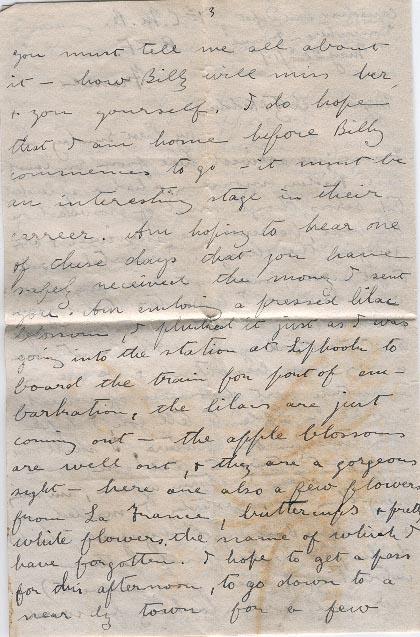 3
you must tell me all about
it - how Billy will miss her,
& you yourself. I do hope
that I am home before Billy
commences to go - it must be
an interesting stage in their
carreer. Am hoping to hear one
of these days that you have
safely received the money I sent
you. Am enclosing a pressed lilac
blossom, I plucked it just as I was
going into the station at Liphook to
board the train for port of em-
barkation, the lilacs are just
coming out - the apple blossoms
are well out, & they are a gorgeous
sight - here are also a few flowers
from La France, buttercups & pretty
white flowers, the name of which I
have forgotten. I hope to get a pass
for this afternoon, to go down to a
near by town for a few